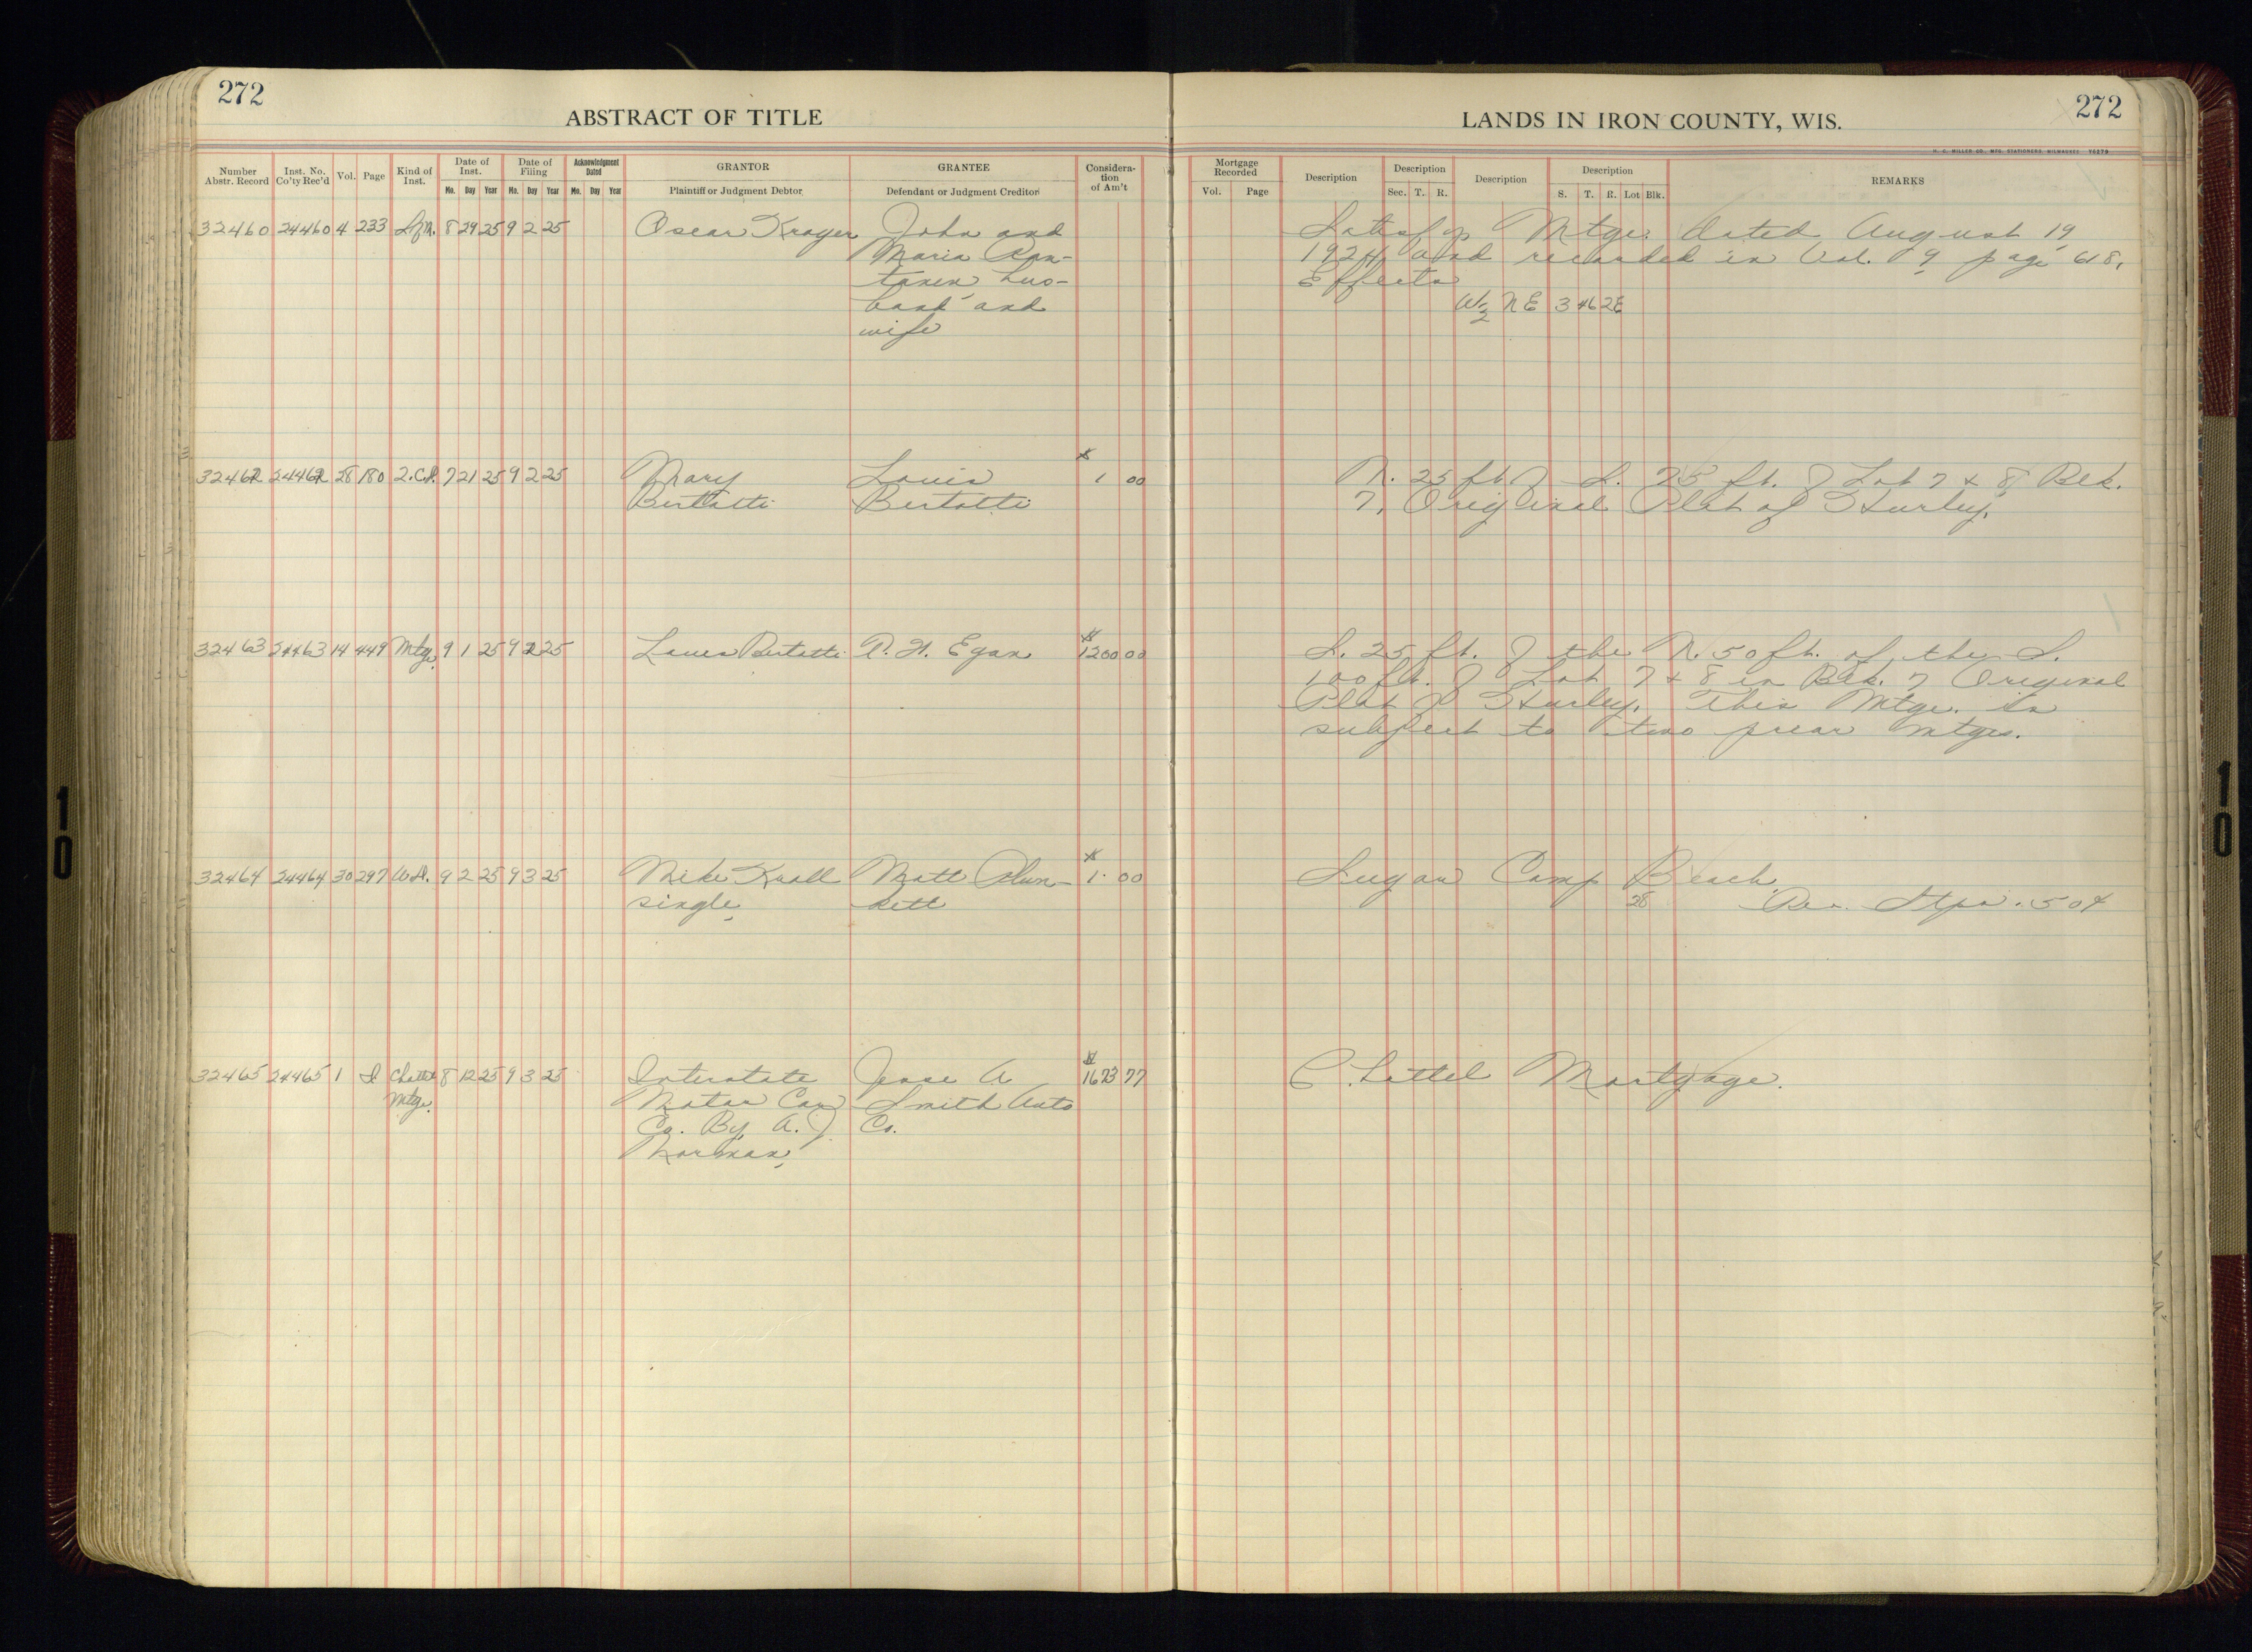 272
ABSTRACT OF TITLE
Number Abstr. Record
Inst. No. Co'ty Rec'd
Vol.
Page
Kind of Inst.
Date of Inst.
Mo. Day Year
Date of Filing
Mo. Day Year
Acknowledgment Dated
Mo. Day Year
GRANTOR
Plaintiff or Judgment Debtor
GRANTEE
Defendant or Judgment Creditor
Considera-
tion
of Am't
32460 24460 4 233 8 29 25 9 2 25 Oscar Kroger John and
Maria Ran-
tanen hus-
band and
wife
32462 24462 28 180 2.C.D. 7 21 25 9 2 25 Mary Louis $ 1 00
Bertotti Bertotti
32463 24463 14 449 Mtge. 9 1 25 9 2 25 Louis Bertotti Egan $ 1200 00
32464 24464 30 297 W.D. 9 2 25 9 3 25 Mike Krall Matt Plun- $ 1. 00
single, kett
32465 24465 1 I Chattel 8 12 25 9 3 25 Interstate Jesse A $ 1673 77
Mtge. Motor Car Smith Auto
Co. By A. J. Co.
Norman,
272
LANDS IN IRON COUNTY, WIS.
H. C. MILLER CO. MFG. STATIONERS MILWAUKEE
Mortgage Recorded
Vol. Page
Description
Description
Sec. T. R.
Description
Description
S. T. R. Lot Blk.
REMARKS
Satisfys Mtge. dated August 19,
1924 and recorded in Vol. 9, page 618,
Effects
W½ NE 3 46 2E
N. 25 ft of S. 75 ft. of Lot 7 & 8, Blk.
7, Original Plat of Hurley.
S. 25 ft. of the N. 50 ft. of the S.
100 ft. of Lot 7 & 8 in Blk. 7 Original
Plat of Hurley. This Mtge. is
subject to two prior mtges.
Sugar Camp Beach.
28 Rev. Stps. 50¢
Chattel Mortgage.